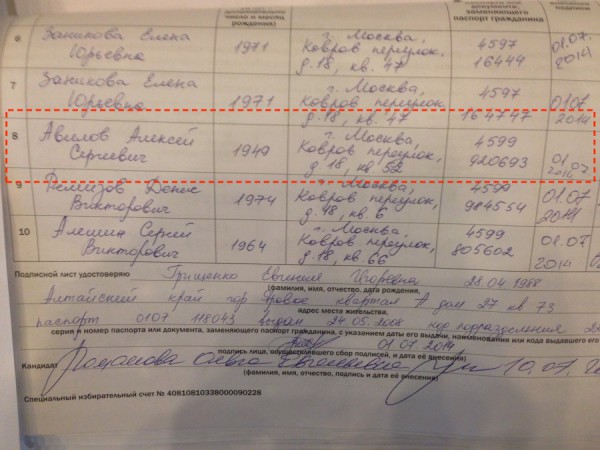 число и месяц
рождения)
документа,
заменяющего
паспорт гражданина
подписи
6 Заникова Елена Юрьевна 1971 г. Москва, Ковров переулок, д.18, кв. 47 4597 16449 01.07. 2014
7 Заникова Елена Юрьевна 1971 г. Москва, Ковров переулок, д.18, кв. 47 4597 164747 01.07 2014
8 Авилов Алексей Сергеевич 1949 г. Москва, Ковров переулок, д.18, кв 52 4599 920693 01.07 2014
9 Ремизов Денис Викторович 1974 г. Москва, Ковров переулок, д.48, кв. 6 4599 984554 01.07 2014
10 Алешин Сергей Викторович 1964 г. Москва, Ковров переулок, д.18, кв 66 4599 805602 01.07. 2014
Подписной лист удостоверяю Грищенко Евгения Игоревна 28.04.1988
(фамилия, имя, отчество, дата рождения,
Алтайский край гор Яровое квартал А дом 27 кв. 73
адрес места жительства,
паспорт 0107 118043 выдан 24.05.2008 код подразделения
серия и номер паспорта или документа, заменяющего паспорт гражданина, с указанием даты его выдачи, наименования или кода выдавшего его
01.07.2014
подпись лица, осуществлявшего сбор подписей, и дата её внесения)
Кандидат Романова Ольга Евгеньевна 10.07.
(фамилия, имя, отчество, подпись и дата её внесения)
Специальный избирательный счет № 40810810338000090228